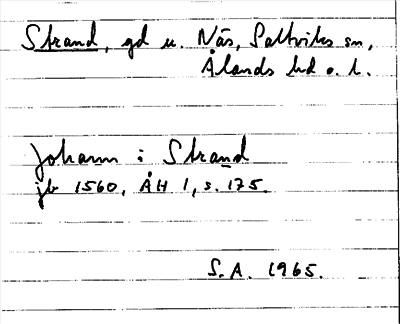 Strand, gd u. Näs, Saltviks sn,
Ålands hd o. l.
Johann i Strand
jb 1560, ÅH 1, s. 175.
S. A. 1965.